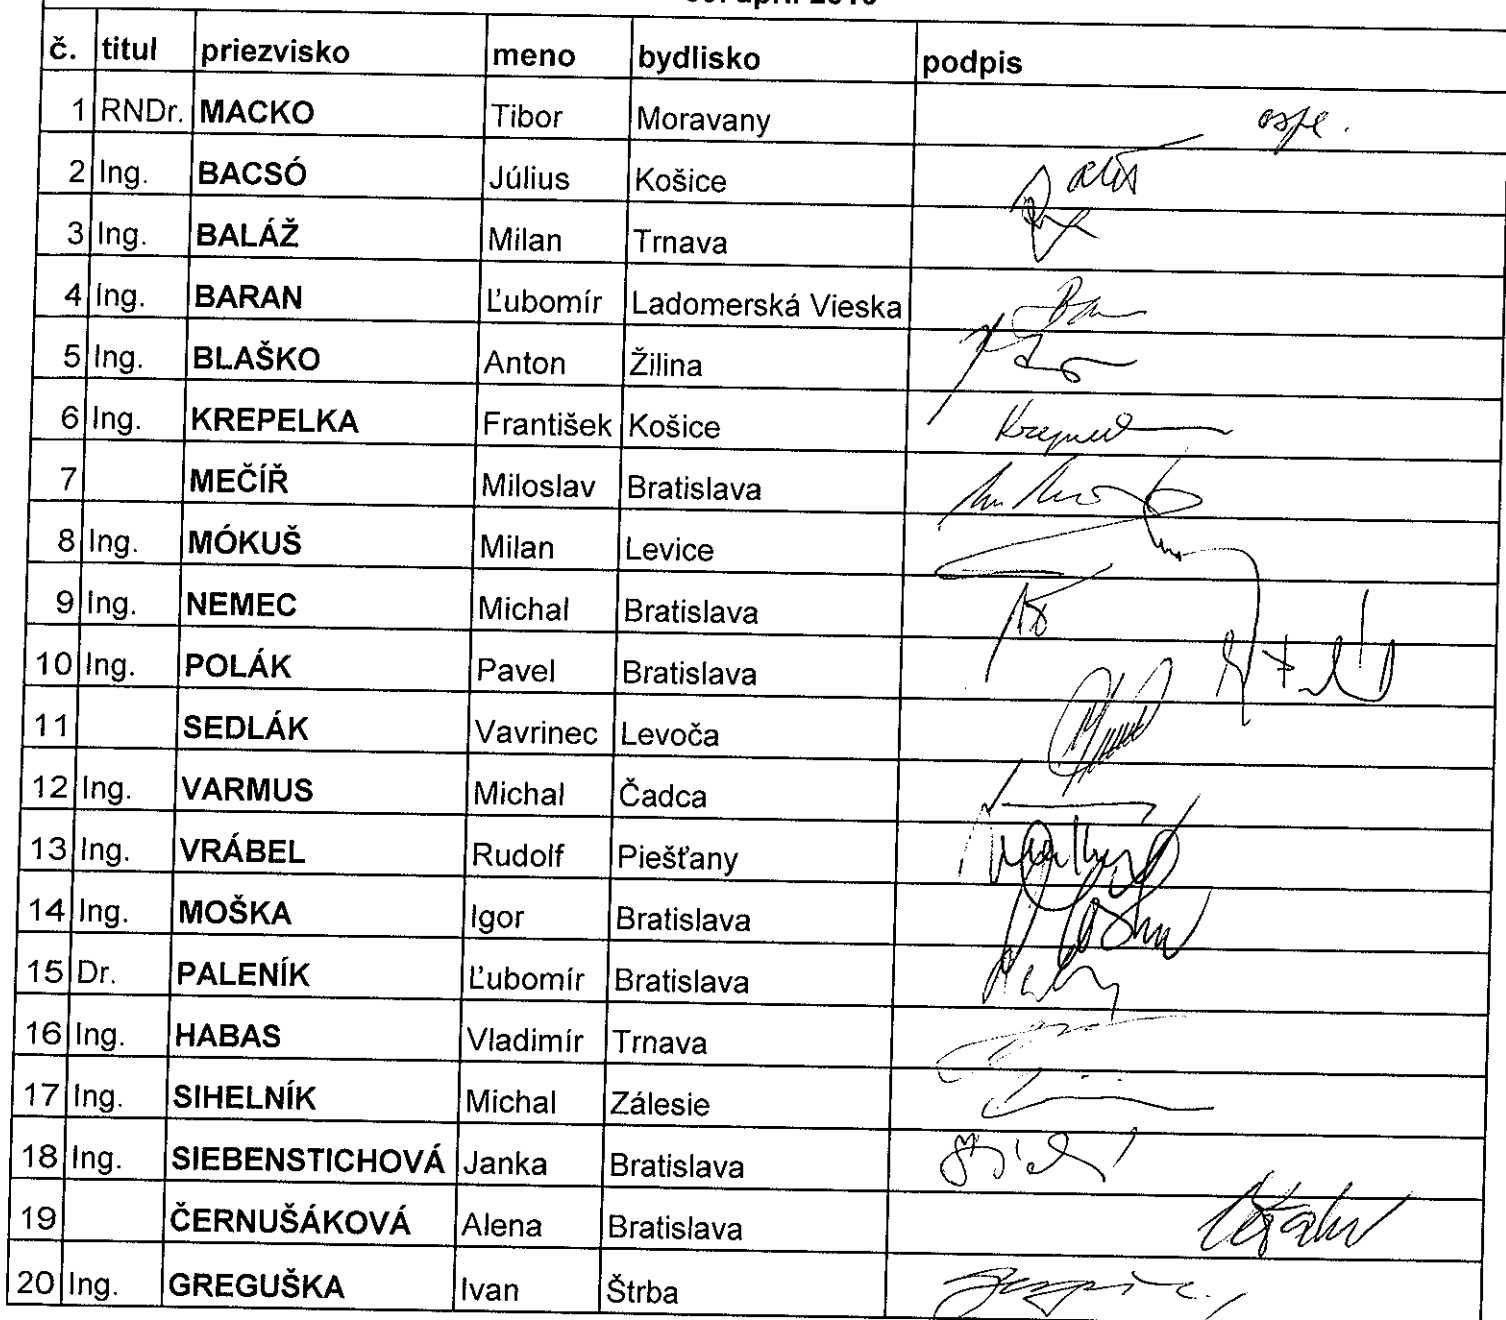 č. titul priezvisko meno bydlisko podpis
1 RNDr. MACKO Tibor Moravany
2 Ing. BACSÓ Július Košice
3 Ing. BALÁŽ Milan Trnava
4 Ing. BARAN Ľubomír Ladomerská Vieska
5 Ing. BLAŠKO Anton Žilina
6 Ing. KREPELKA František Košice
7 MEČÍŘ Miloslav Bratislava
8 Ing. MÓKUŠ Milan Levice
9 Ing. NEMEC Michal Bratislava
10 Ing. POLÁK Pavel Bratislava
11 SEDLÁK Vavrinec Levoča
12 Ing. VARMUS Michal Čadca
13 Ing. VRÁBEL Rudolf Piešťany
14 Ing. MOŠKA Igor Bratislava
15 Dr. PALENÍK Ľubomír Bratislava
16 Ing. HABAS Vladimír Trnava
17 Ing. SIHELNÍK Michal Zálesie
18 Ing. SIEBENSTICHOVÁ Janka Bratislava
19 ČERNUŠÁKOVÁ Alena Bratislava
20 Ing. GREGUŠKA Ivan Štrba